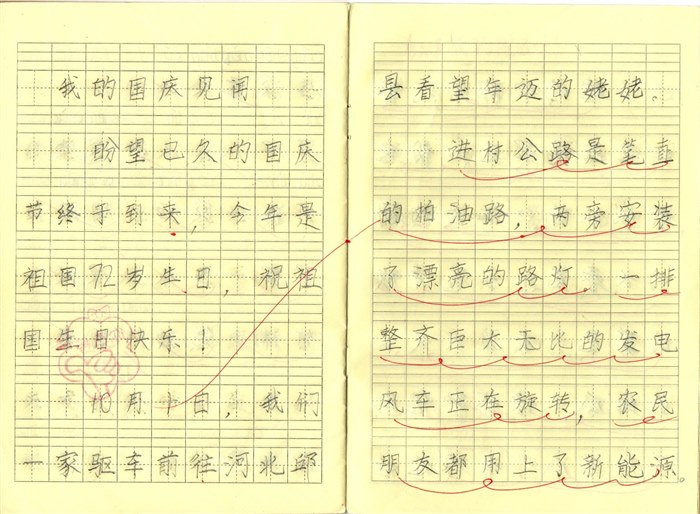 我的国庆见闻
盼望已久的国庆
节终于到来，今年是
祖国72岁生日，祝祖
国生日快乐！
10月1日，我们
一家驱车前往河北邱
县看望年迈的姥姥。
进村公路是笔直
的柏油路，两旁安装
了漂亮的路灯，一排
整齐巨大无比的发电
风车正在旋转，农民
朋友都用上了新能源。